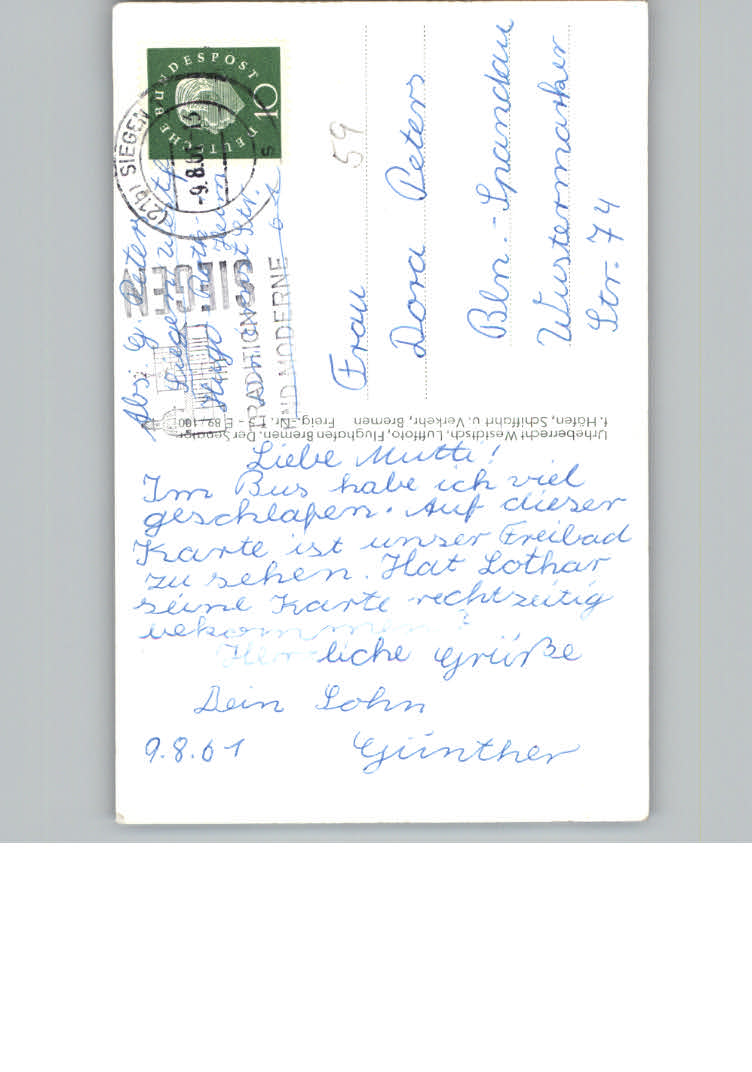 Liebe Mutti!
Im Bus habe ich viel
geschlafen. Auf dieser
Karte ist unser Freibad
zu sehen. Hat Lothar
seine Karte rechtzeitig
bekommen?
Herzliche Grüße
Dein Sohn
9.8.61 Günther
Frau
Dora Peters
Bln.-Spandau
Wustermarker
Str. 74
59
Abs. G. Peters
DEUTSCHE BUNDESPOST
10
(21b) SIEGEN
-9.8.61
SIEGEN
TRADITION
UND MODERNE
Urheberrecht Westdtsch. Luftfoto, Flughafen Bremen. Der Senator
f. Häfen, Schiffahrt u. Verkehr, Bremen Freig.-Nr.